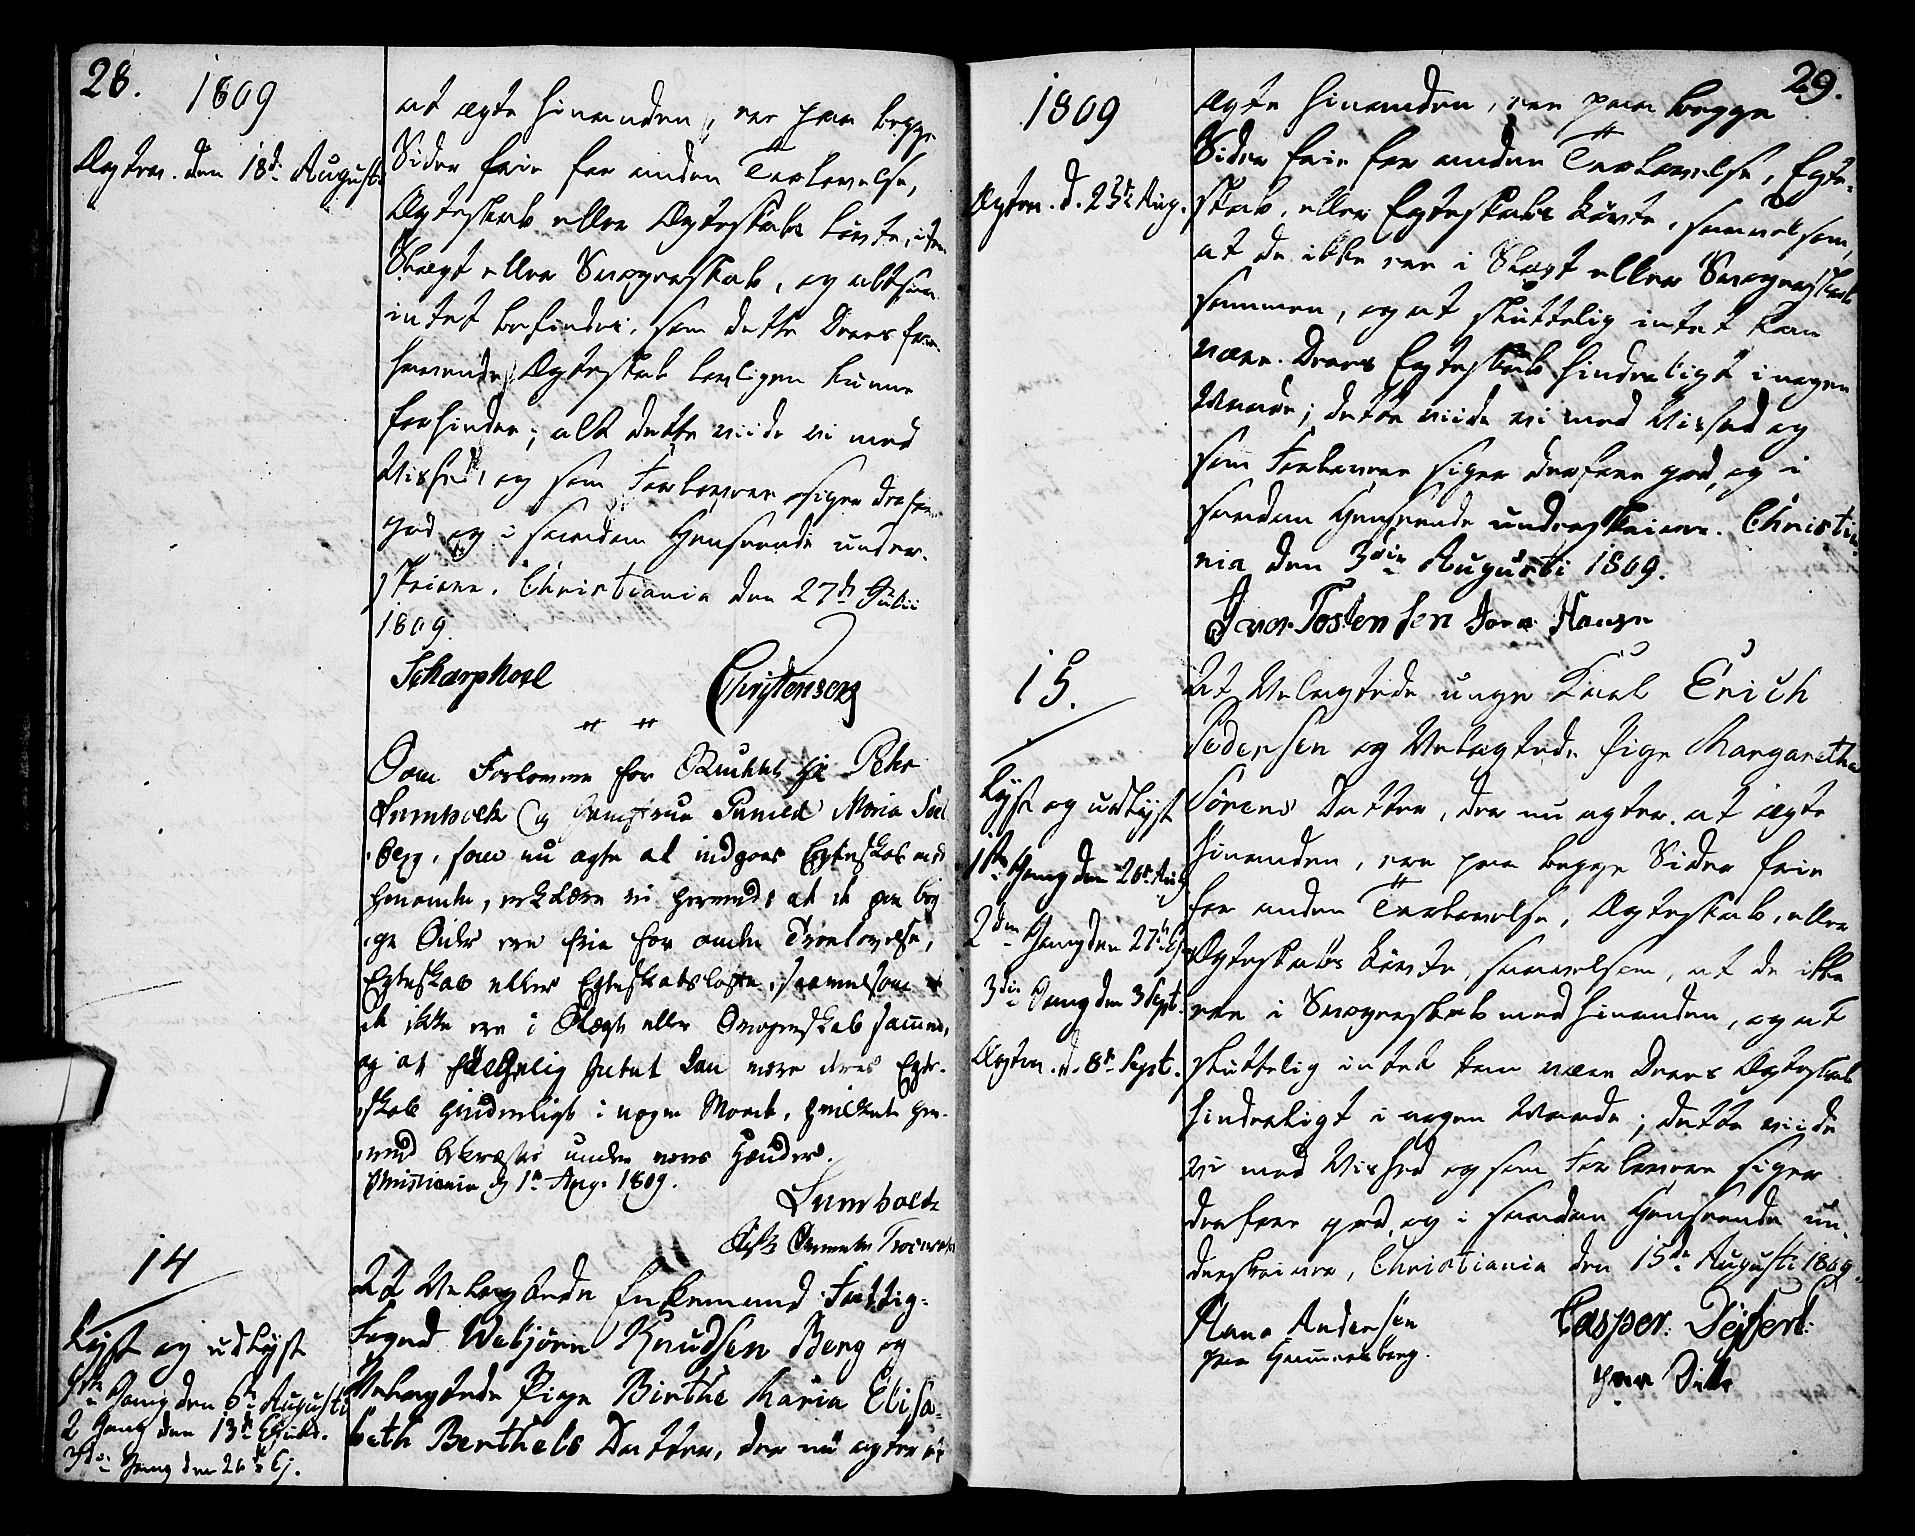 28.
1809
Ægtev. den 18de Augusti
at ægte hinanden, ere paa begge
Sider frie for anden Trolovelse,
Ægteskab eller Ægteskabs Løvte, uden
Slægt eller Svogerskab, og altsaa
intet befindes, som dette Deres fore
havende Ægteskab lovligen kunne
forhindre; alt dette viide vi med
Vished, og som Forlovere siger derfor
god og i saadan Henseende under-
skriver. Christiania den 27de Julii
1809.
Christensen
Som Forlovere for Hr Peter
Lumholtz og Jomfrue Maria
berg, som nu agte at indgaae Egteskab med
hinanden, erklære vi herved, at de paa beg
ge Sider ere frie for anden Troelovelse,
Egteskab eller Egteskabsløfte, saavelsom at
de ikke ere i Slægt eller Svogerskab sammen,
og at skielliglig Intet kan være deres Egte-
skab hinderligt i nogen Maade, hvilket her-
ved bekræftes under vores Hænder.
Christiania d. 1te Aug. 1809.
Lumholtz
14
Lyst og udlyst
1ste Gang den 6te Augusti
2 Gang den 13de Ejusd.
3die Gang den 20de Ej.
At Velagtede Enkemand Fattig-
Foged Webjørn Knudsen Berg og
Velagtede Pige Birthe Maria Elisa-
beth Berthels Datter, der nu agter at
29.
1809
Ægtev. d. 23de Aug.
Ægte hinanden, ere paa begge
Sider frie for anden Trolovelse, Egte-
skab, eller Egteskabs Løvte, saavelsom,
at de ikke ere i Slægt eller Svogerskab
sammen, og at skuttelig intet kan
være Deres Egteskab hinderligt i nogen
Maade; dette viide vi med Vished og
som Forlovere siger derfore god, og i
saadan Henseende underskriver. Christia-
nia den 3die Augusti 1809.
Iver Tostensen Hansen
15.
Lyst og udlyst
1ste Gang den 20de Aug
2den Gang den 27de Ej
3die Gang den 3 Sept.
Ægtev. d. 8de Sept.
At Velagtede unge Karl Erich
Pedersen og Velagtede Pige Margaretha
Sørens Datter, der nu agter at ægte
hinanden, ere paa begge Sider frie
for anden Trolovelse, Ægteskab, eller
Ægteskabs Løvte, saavelsom, at de ikke
ere i Svogerskab med hinanden, og at
skuttelig intet kan være Deres Ægteskab
hinderligt i nogen Maade; dette viide
vi med Vished og som Forlovere siger
derfore god, og i saadan Henseende un-
derskriver, Christiania den 15de Augusti 1809.
Hans Andersen
paa Hammersborg.
Casper Dejsert
paa Ditto